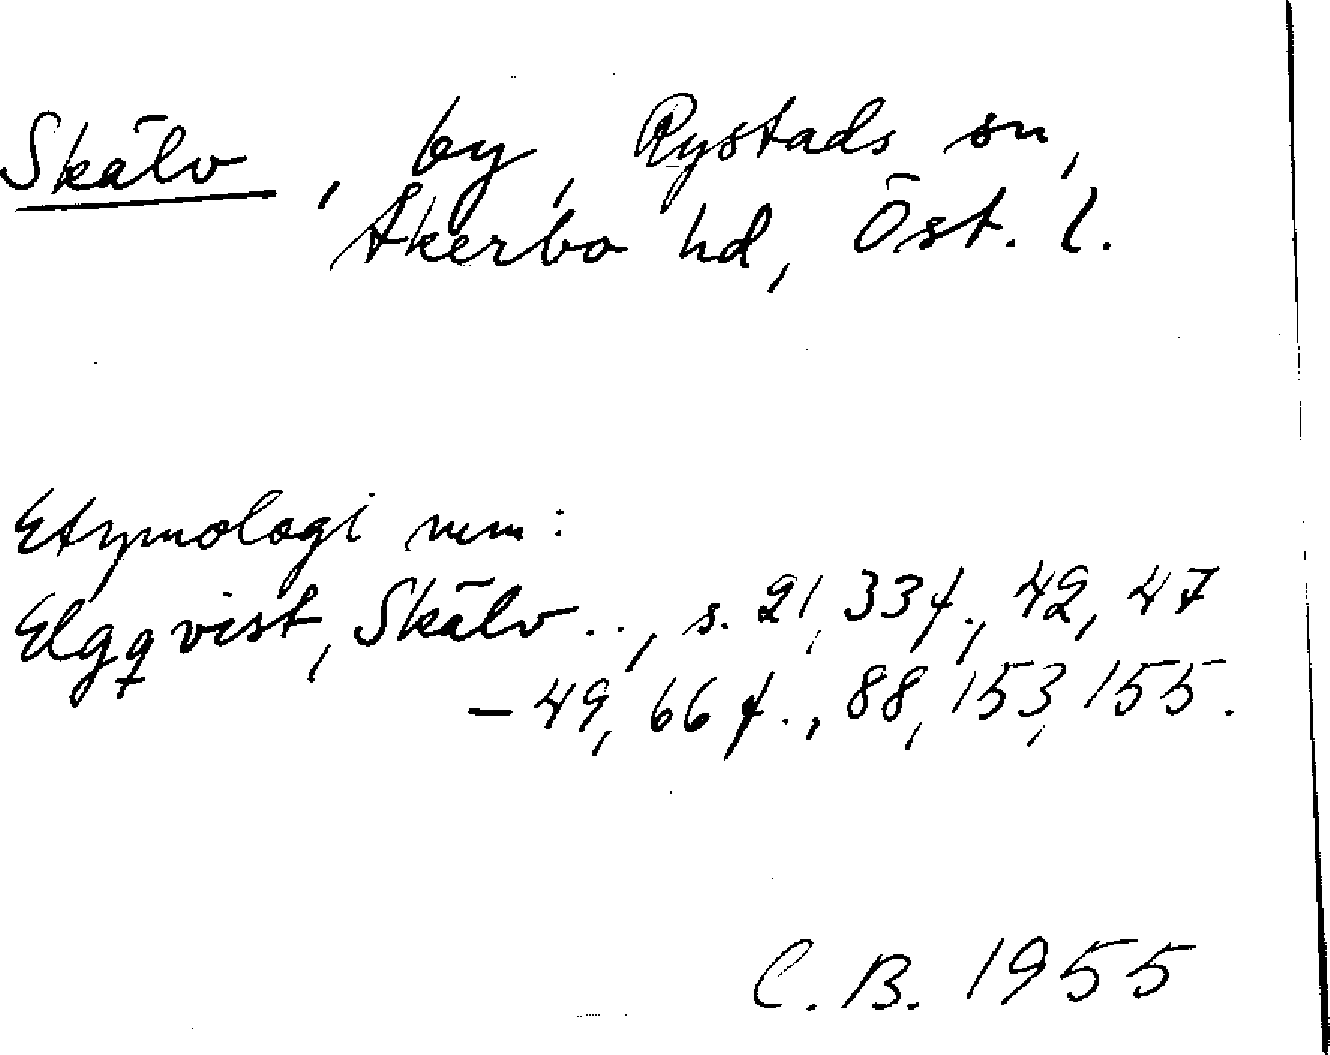 Skälv, by, Rystads sn,
Åkerbo hd, Öst. l.
Etymologi mm:
Elgqvist, Skälv.., s. 21, 33 f., 42, 47
– 49, 66 f., 88, 153, 155.
C. B. 1955